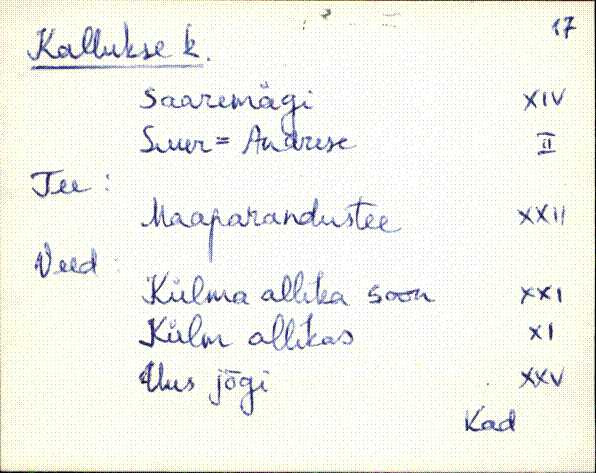 17
Kallukse k.
Saaremägi XIV
Suur=Andrese II
Tee:
Maaparandustee XXII
Veed:
Külma allika soon XXI
Külm allikas XI
Uus jõgi XXV
Kad